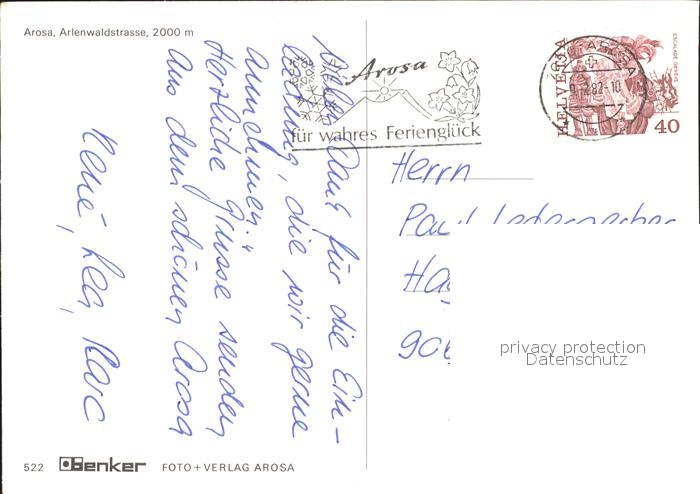 Arosa, Arlenwaldstrasse, 2000 m
Arosa
für wahres Ferienglück
HELVETIA
ESCALADE GENÈVE
40
Vielen Dank für die Ein-
ladung, die wir gerne
annehmen.
Herzliche Grüsse senden
aus dem schönen Arosa
René, Lea, Marc
Herrn
Paul
privacy protection
Datenschutz
522 Benker FOTO + VERLAG AROSA